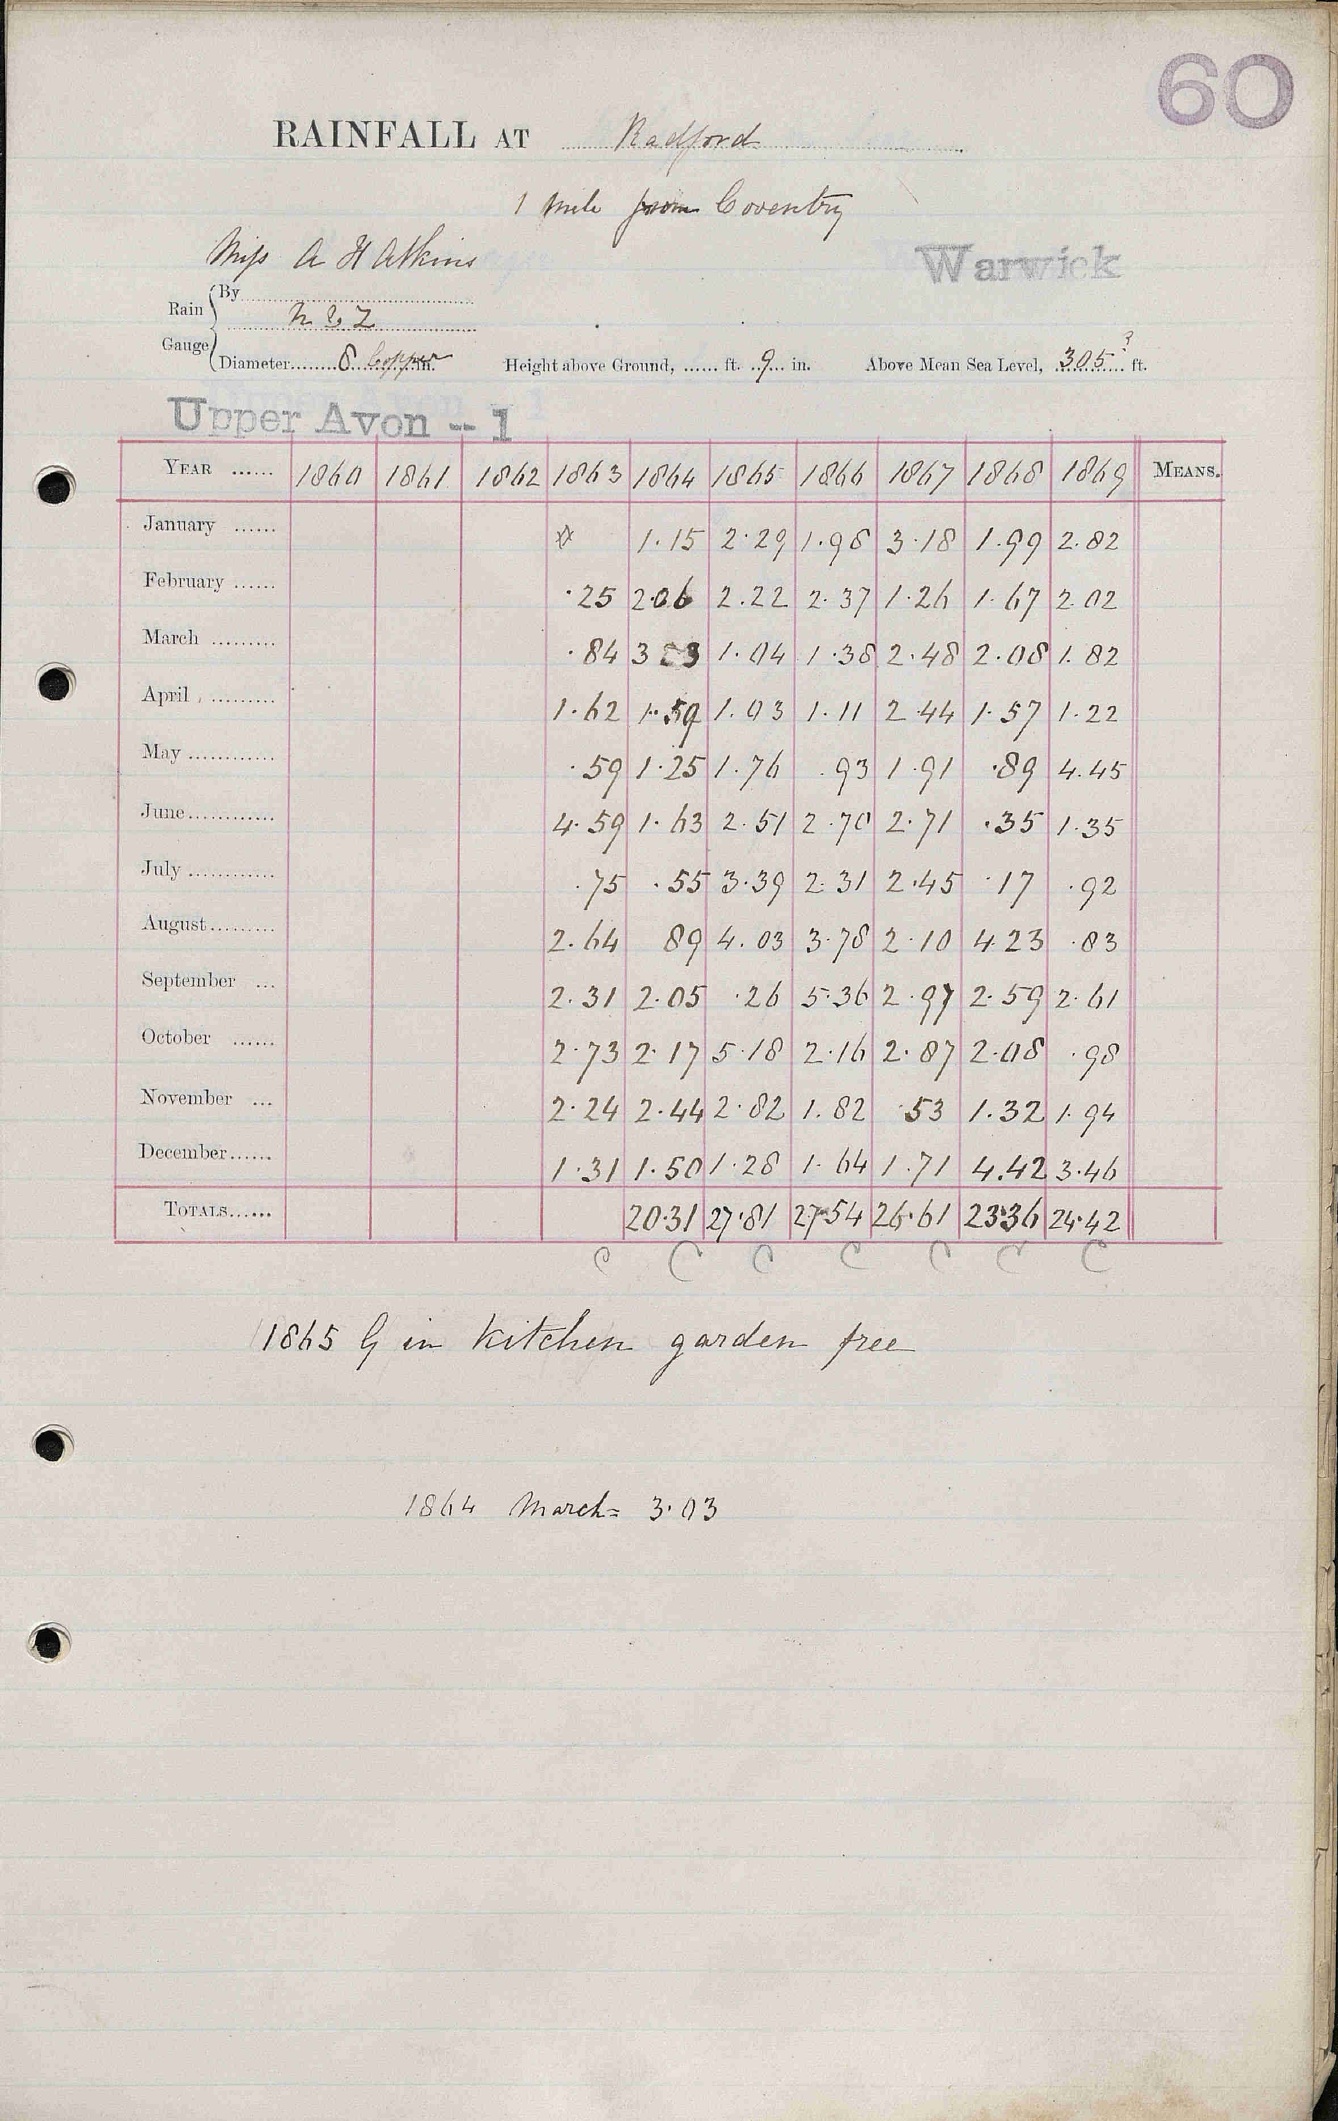 60
RAINFALL AT Radford
1 mile from Coventry
Miss A H Atkins
Warwick
Rain Gauge { By
N & Z
Diameter 8 Copper in. Height above Ground, ...... ft. 9 in. Above Mean Sea Level, 305 ? ft.
Upper Avon -- 1
YEAR ...... 1860 1861 1862 1863 1864 1865 1866 1867 1868 1869 MEANS.
January ...... * 1.15 2.29 1.98 3.18 1.99 2.82
February ...... .25 2.06 2.22 2.37 1.26 1.67 2.02
March ......... .84 3 03 1.04 1.38 2.48 2.08 1.82
April ......... 1.62 1.59 1.03 1.11 2.44 1.57 1.22
May ............ .59 1.25 1.76 .93 1.91 .89 4.45
June............ 4.59 1.63 2.51 2.70 2.71 .35 1.35
July ............ .75 .55 3.39 2.31 2.45 .17 .92
August......... 2.64 89 4.03 3.78 2.10 4.23 .83
September ... 2.31 2.05 .26 5.36 2.97 2.59 2.61
October ...... 2.73 2.17 5.18 2.16 2.87 2.08 .98
November ... 2.24 2.44 2.82 1.82 .53 1.32 1.94
December...... 1.31 1.50 1.28 1.64 1.71 4.42 3.46
TOTALS...... 20.31 27.81 27.54 26.61 23.36 24.42
C C C C C C C
1865 G in kitchen garden free
1864 March = 3.03